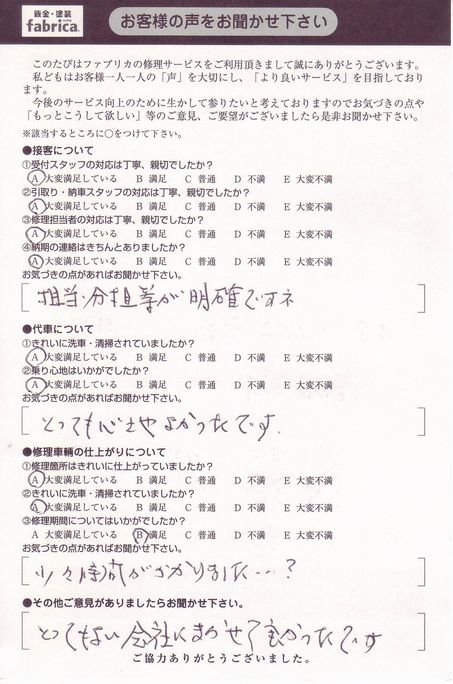 鈑金・塗装
fabrica.
お客様の声をお聞かせ下さい
このたびはファブリカの修理サービスをご利用頂きまして誠にありがとうございます。
私どもはお客様一人一人の「声」を大切にし、「より良いサービス」を目指しており
ます。
今後のサービス向上のために生かして参りたいと考えておりますのでお気づきの点や
「もっとこうして欲しい」等のご意見、ご要望がございましたら是非お聞かせ下さい。
※該当するところに○をつけて下さい。
●接客について
①受付スタッフの対応は丁寧、親切でしたか?
A 大変満足している B 満足 C 普通 D 不満 E 大変不満
②引取り・納車スタッフの対応は丁寧、親切でしたか?
A 大変満足している B 満足 C 普通 D 不満 E 大変不満
③修理担当者の対応は丁寧、親切でしたか?
A 大変満足している B 満足 C 普通 D 不満 E 大変不満
④納期の連絡はきちんとありましたか?
A 大変満足している B 満足 C 普通 D 不満 E 大変不満
お気づきの点があればお聞かせ下さい。
担当・分担等が明確ですネ
●代車について
①きれいに洗車・清掃されていましたか?
A 大変満足している B 満足 C 普通 D 不満 E 大変不満
②乗り心地はいかがでしたか?
A 大変満足している B 満足 C 普通 D 不満 E 大変不満
お気づきの点があればお聞かせ下さい。
とっても よかったです.
●修理車輌の仕上がりについて
①修理箇所はきれいに仕上がっていましたか?
A 大変満足している B 満足 C 普通 D 不満 E 大変不満
②きれいに洗車・清掃されていましたか?
A 大変満足している B 満足 C 普通 D 不満 E 大変不満
③修理期間についてはいかがでしたか?
A 大変満足している B 満足 C 普通 D 不満 E 大変不満
お気づきの点があればお聞かせ下さい。
少々時間がかかりました…?
●その他ご意見がありましたらお聞かせ下さい。
とってもよい会社にまかせて良かったです
ご協力ありがとうございました。